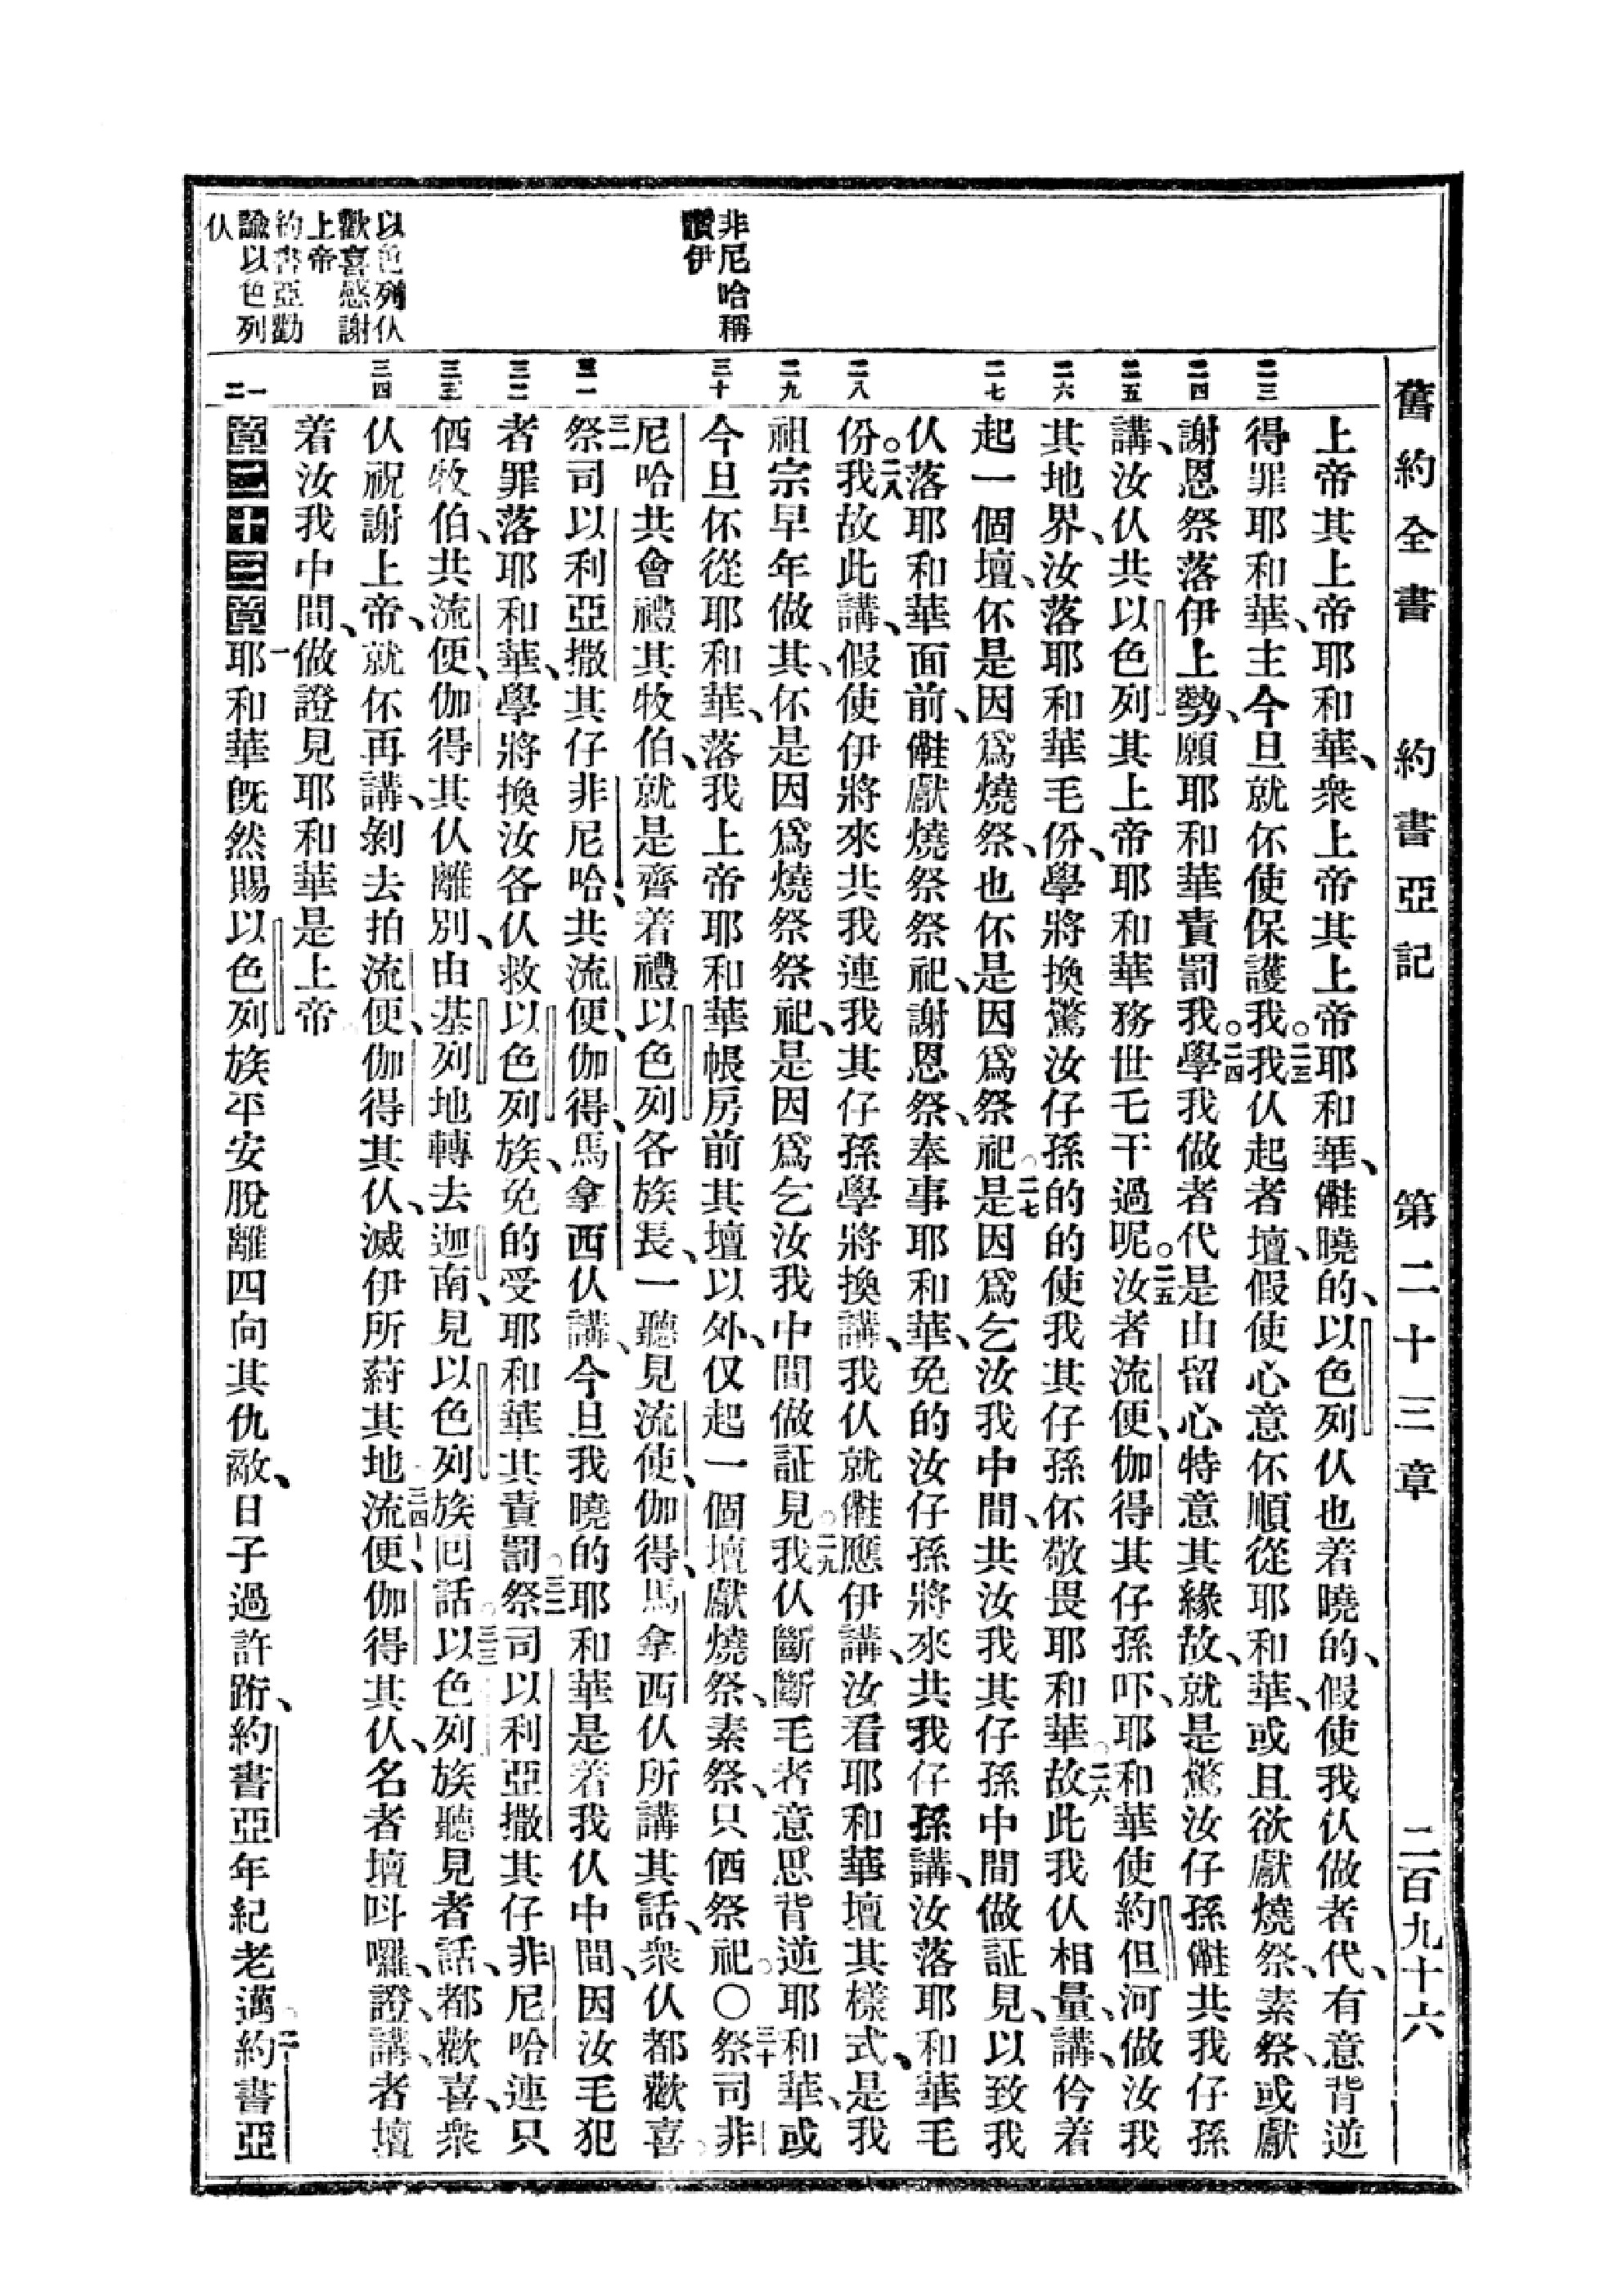 舊約全書　約書亞記　第二十三章　二百九十六
上帝其上帝耶和華、衆上帝其上帝耶和華、儺曉的、以色列仈也着曉的、假使我仈做者代、有意背逆
得罪耶和華、主今旦就伓使保護我。二三我仈起者壇、假使心意伓順從耶和華、或且欲獻燒祭、素祭、或獻
謝恩祭落伊上勢、願耶和華責罰我。二四學我做者代是由留心特意其緣故、就是驚汝仔孫儺共我仔孫
講、汝仈共以色列其上帝耶和華務世乇干過呢。二五汝者流便、伽得其仔孫吓、耶和華使約但河做汝我
其地界、汝落耶和華毛份、學將換驚汝仔孫的的使我其仔孫伓敬畏耶和華。二六故此我仈相量、講、伶着
起一個壇、伓是因爲燒祭、也伓是因爲祭祀。二七是因爲乞汝我中間、共汝我其仔孫中間做証見、以致我
仈落耶和華面前、儺獻燒祭祭祀、謝恩祭、奉事耶和華、免的汝仔孫將來共我仔孫講、汝落耶和華毛
份。二八我故此講、假使伊將來共我連我其仔孫學將換講、我仈就儺應伊講、汝看耶和華壇其樣式、是我
祖宗早年做其、伓是因爲燒祭祭祀、是因爲乞汝我中間做証見。二九我仈斷斷毛者意思背逆耶和華、或
今旦伓從耶和華、落我上帝耶和華帳房前其壇以外、仅起一個壇獻燒祭、素祭、只𠆧祭祀。〇三十祭司非
尼哈共會禮其牧伯、就是齊着禮以色列各族長、一聽見流便、伽得、馬拿西仈所講其話、衆仈都歡喜。
三一祭司以利亞撒其仔非尼哈、共流便、伽得、馬拿西仈講、今旦我曉的耶和華是着我仈中間、因汝毛犯
者罪落耶和華、學將換汝各仈救以色列族、免的受耶和華其責罰。三二祭司以利亞撒其仔非尼哈、連只
𠆧牧伯、共流便、伽得其仈離別、由基列地轉去迦南、見以色列族回話。三三以色列族聽見者話、都歡喜、衆
仈祝謝上帝、就伓再講、剝去拍流便、伽得其仈、滅伊所蒞其地。三四流便、伽得其仈、名者壇呌囉證、講、者壇
着汝我中間、做證見耶和華是上帝
第二十三章一耶和華旣然賜以色列族平安脫離四向其仇敵、日子過許𨀣、約書亞年紀老邁。二約書亞
非尼哈稱
讚伊
以色列仈
歡喜感謝
上帝
約書亞勸
諭以色列
仈
二三
二四
二五
二六
二七
二八
二九
三十
三一
三二
三三
三四
一
二